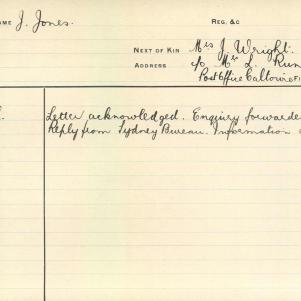 NAME J. Jones. REG. &C
NEXT OF KIN Mrs J. Wright.
ADDRESS c/o Mr L. Run
Post Office Caltowie
Letter acknowledged. Enquiry forwarde
Reply from Sydney Bureau. Information